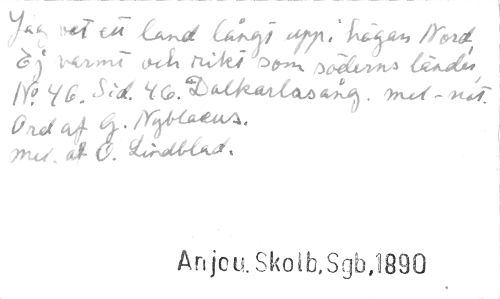 Jag vet ett land långt upp i högan Nord,
Ej varmt och rikt som söderns länder,
No 46. Sid. 46. Dalkarlasång. mel-not.
Ord af G. Nyblaeus.
mel. af O. Lindblad.
Anjou. Skolb, Sgb, 1890